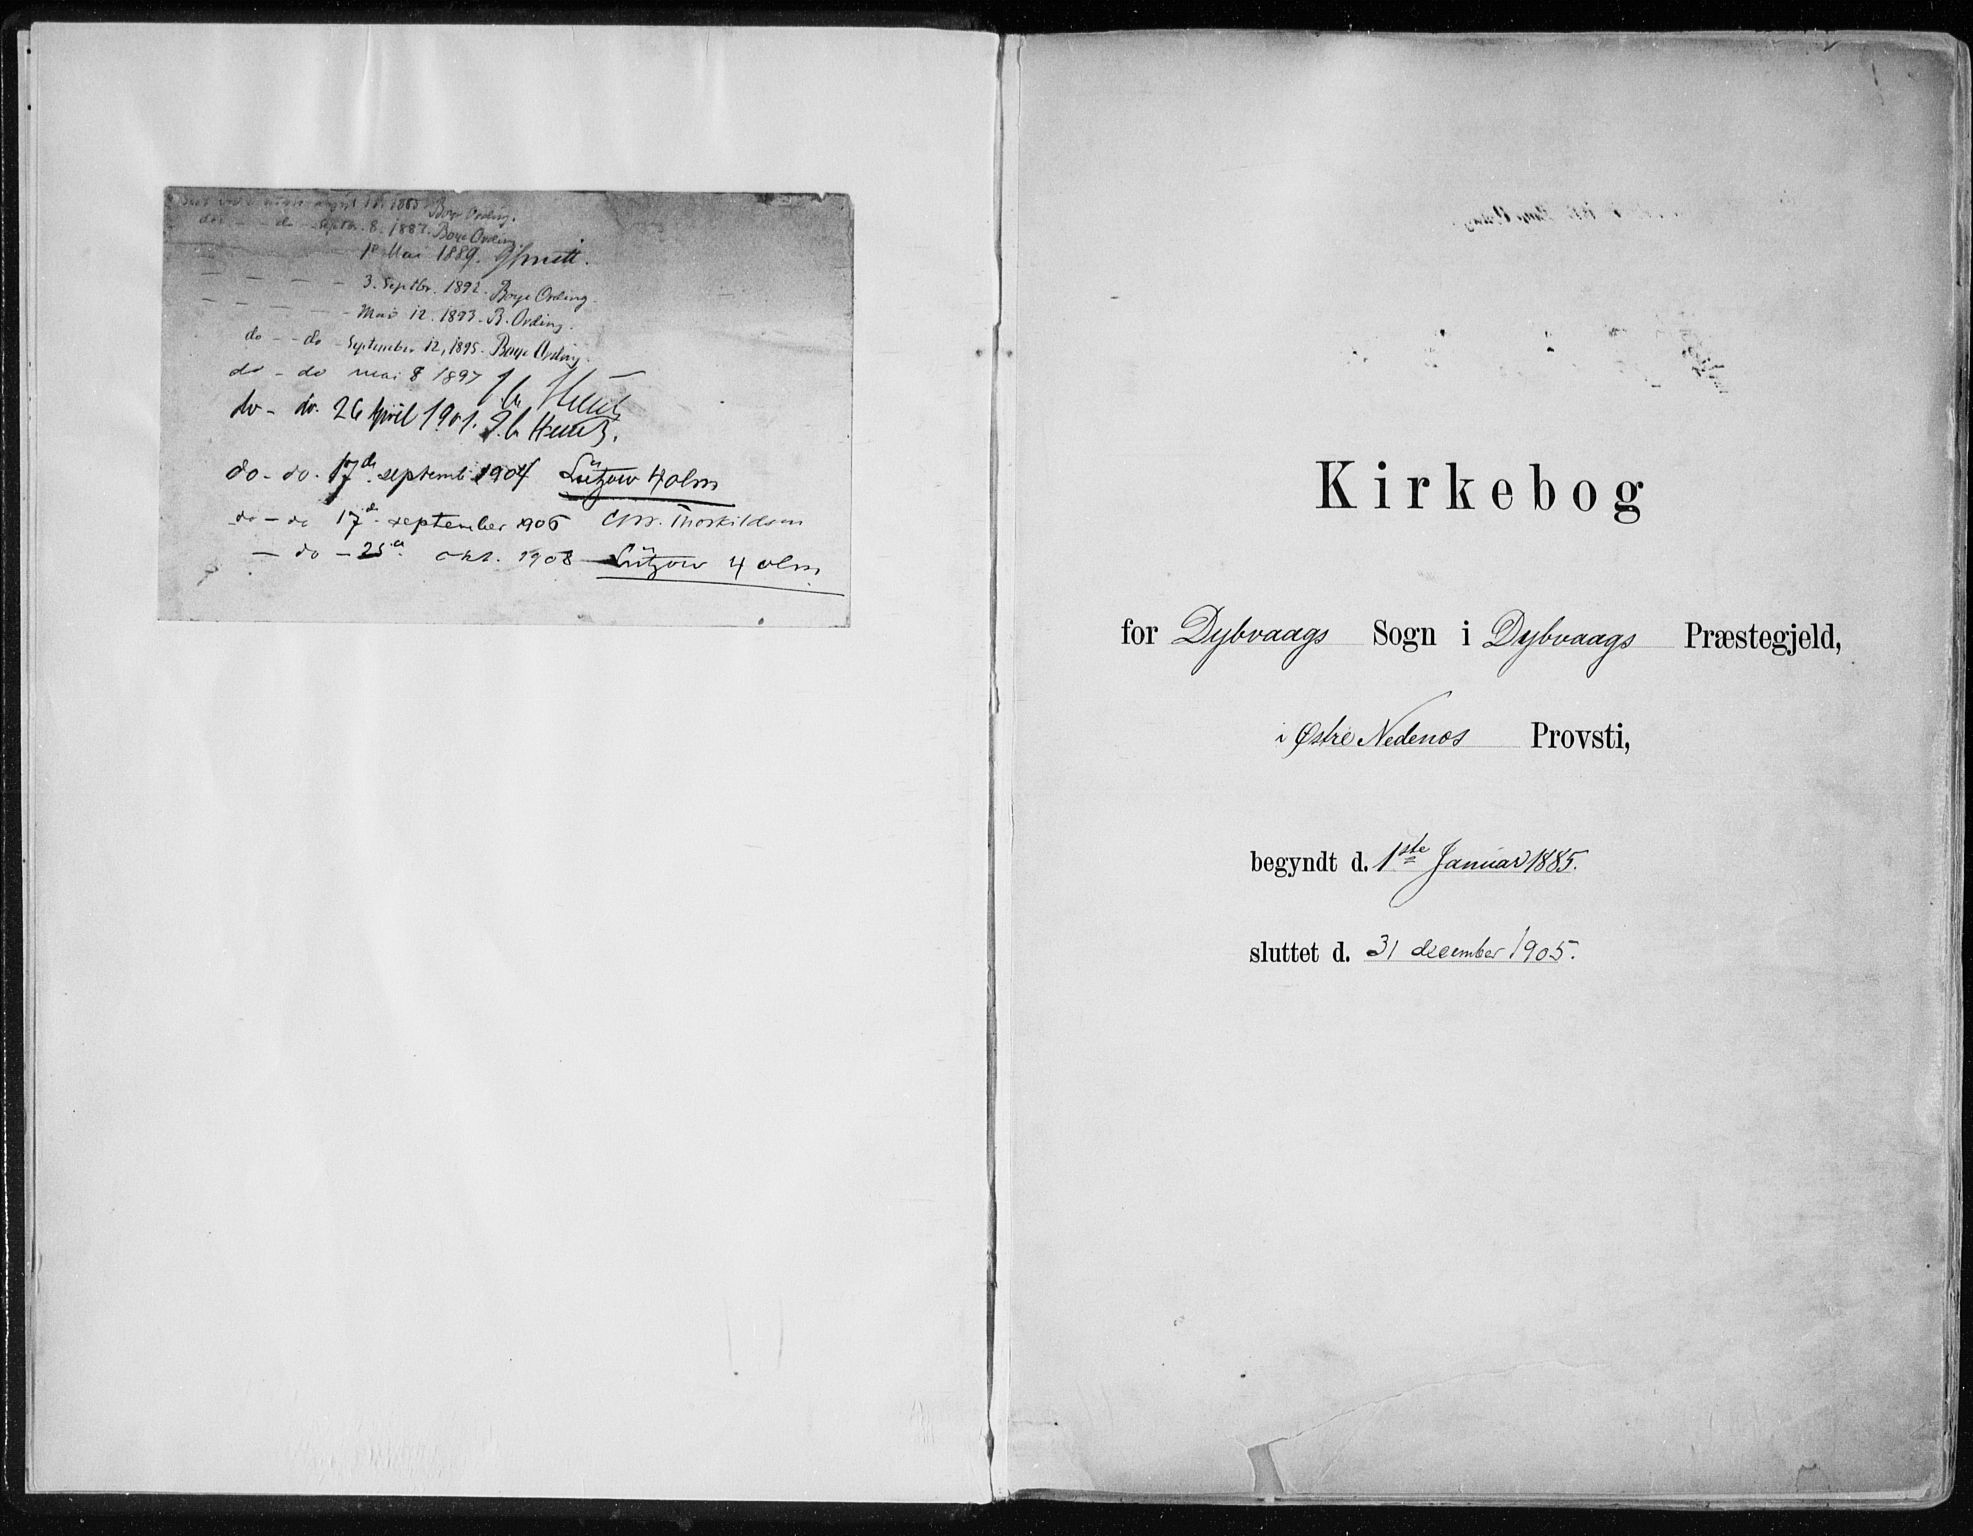 august 18. 1885 Boye Ording.
do - - do - Septbr. 8. 1887. Boye Ording.
18 Mai 1889.
— — — — 3. Septbr. 1892. Boye Ording.
— — — — Mai 12. 1893. B. Ording.
do - - do - September 12, 1895. Boye Ording.
do - do mai 8 1897
do - do. 26 April 1901.
do - do. 17de septemb 1904 Lützow Holm
do - do 17de september 1906 Chr. Thorkildsen
— do - 25de okt. 1908 Lützow Holm
Kirkebog
for Dybvaags Sogn i Dybvaags Præstegjeld,
i Østre Nedenes Provsti,
begyndt d. 1ste Januar 1885.
sluttet d. 31 december 1905.